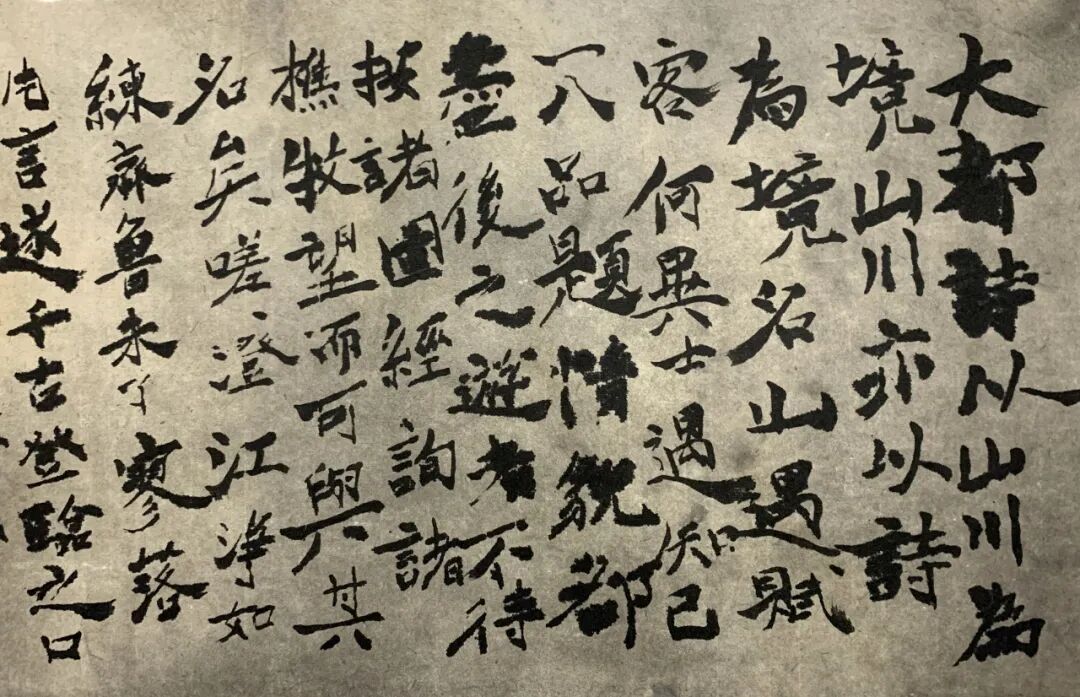 大都詩以山川為
境山川亦以詩
為境名山遇賦
客何異士遇知己
一入品題情貌都
盡後之遊者不待
按諸圖經詢諸
樵牧望而可舉其
名矣嗟澄江淨如
練齊魯未了寥落
片言遂千古登臨之口